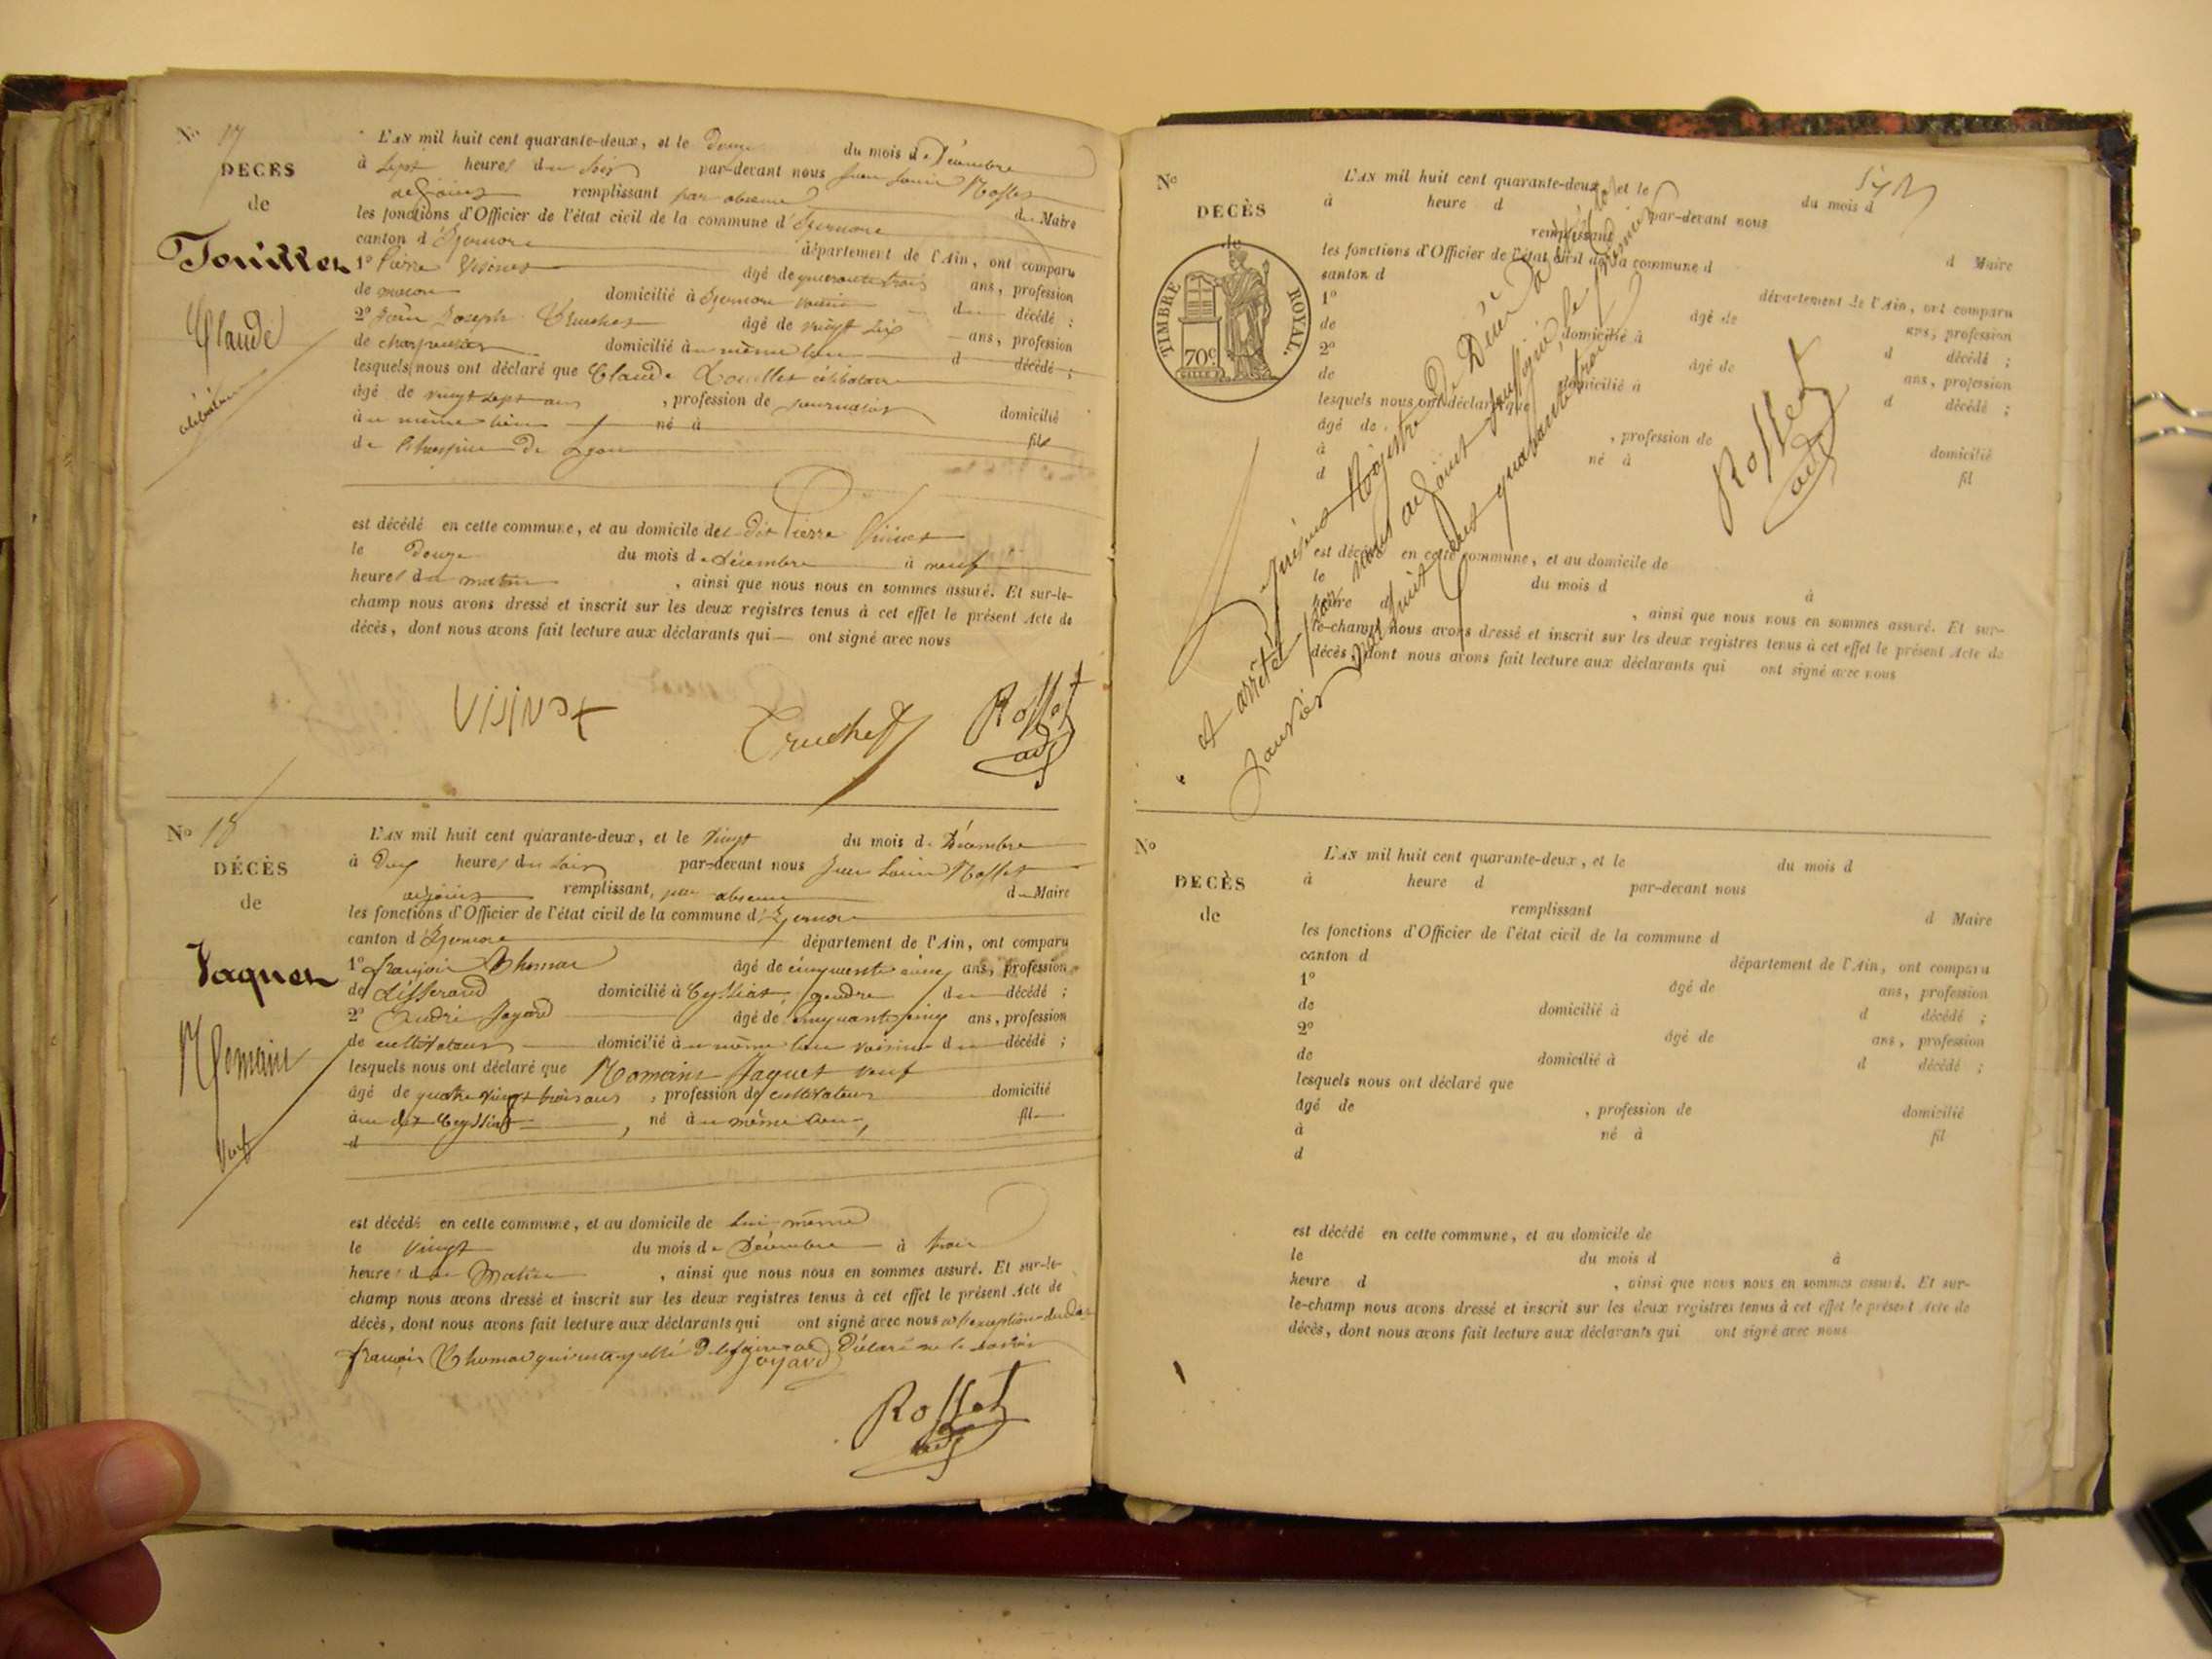 N° 17
DÉCÈS
de
Touillet
Claude
célibataire
L'AN mil huit cent quarante-deux, et le douze du mois de Décembre
à sept heures du soir par-devant nous Jean Louis Rosset
adjoint remplissant par absence du Maire
les fonctions d'Officier de l'état civil de la commune d'Izernore
canton d'Izernore département de l'Ain, ont comparu
1° Pierre âgé de quarante trois ans, profession
de maçon domicilié à Izernore voisin du décédé ;
2° Jean Joseph Cruchet âgé de vingt six ans, profession
de charpentier domicilié au même lieu d décédé ;
lesquels nous ont déclaré que Claude Touillet célibataire
âgé de vingt sept ans , profession de journalier domicilié
au même lieu né à fils
de l'hospice de Lyon
est décédé en cette commune, et au domicile du dit Pierre
le douze du mois de Décembre à neuf
heures du matin , ainsi que nous nous en sommes assuré. Et sur-le-
champ nous avons dressé et inscrit sur les deux registres tenus à cet effet le présent Acte de
décès, dont nous avons fait lecture aux déclarants qui ont signé avec nous
Cruchet Rosset
adj
N° 18
DÉCÈS
de
Jaquet
Romain
veuf
L'AN mil huit cent quarante-deux, et le vingt du mois de Décembre
à deux heures du soir par-devant nous Jean Louis Rosset
adjoint remplissant, par absence du Maire
les fonctions d'Officier de l'état civil de la commune d'Izernore
canton d'Izernore département de l'Ain, ont comparu
1° françois Thomas âgé de cinquante cinq ans, profession
de tisserand domicilié à Ceyssiat, gendre du décédé ;
2° André Joyard âgé de cinquante cinq ans, profession
de cultivateur domicilié au même lieu voisin du décédé ;
lesquels nous ont déclaré que Romain Jaquet veuf
âgé de quatre vingt trois ans , profession de cultivateur domicilié
au dit Ceyssiat , né au même lieu, fils
d
est décédé en cette commune, et au domicile de lui même
le vingt du mois de Décembre à trois
heures du matin , ainsi que nous nous en sommes assuré. Et sur-le-
champ nous avons dressé et inscrit sur les deux registres tenus à cet effet le présent Acte de
décès, dont nous avons fait lecture aux déclarants qui ont signé avec nous à l'exception du dit
françois Thomas qui de le faire a déclaré ne le savoir
Joyard
Rosset
adj
N°
DÉCÈS
de
TIMBRE ROYAL.
70 c
L'AN mil huit cent quarante-deux, et le du mois d
à heure d par-devant nous
remplissant d Maire
les fonctions d'Officier de l'état civil de la commune d
canton d département de l'Ain, ont comparu
1° âgé de ans, profession
de domicilié à d décédé ;
2° âgé de ans, profession
de domicilié à d décédé ;
lesquels nous ont déclaré que
âgé de , profession de domicilié
à né à fil
d
est décédé en cette commune, et au domicile de
le du mois d à
heure d , ainsi que nous nous en sommes assuré. Et sur-
le-champ nous avons dressé et inscrit sur les deux registres tenus à cet effet le présent Acte de
décès, dont nous avons fait lecture aux déclarants qui ont signé avec nous
présent Registre de Décès
et arrêté par nous adjoint soussigné, le premier
Janvier mil huit cent quarante trois
Rosset
adj
N°
DÉCÈS
de
L'AN mil huit cent quarante-deux, et le du mois d
à heure d par-devant nous
remplissant d Maire
les fonctions d'Officier de l'état civil de la commune d
canton d département de l'Ain, ont comparu
1° âgé de ans, profession
de domicilié à d décédé ;
2° âgé de ans, profession
de domicilié à d décédé ;
lesquels nous ont déclaré que
âgé de , profession de domicilié
à né à fil
d
est décédé en cette commune, et au domicile de
le du mois d à
heure d , ainsi que nous nous en sommes assuré. Et sur-
le-champ nous avons dressé et inscrit sur les deux registres tenus à cet effet le présent Acte de
décès, dont nous avons fait lecture aux déclarants qui ont signé avec nous